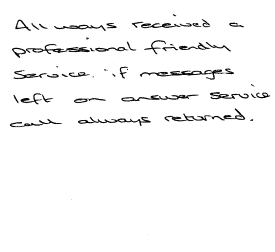 All ways received a
professional friendly
Service. if messages
left on answer service
call always returned.